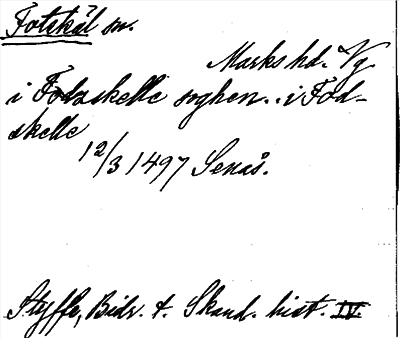 Fotskäl sn.
Marks hd. Vg
i Fodzskelle soghen. . i Fod-
skelle
12/3 1497 Senäs.
Styffe, Bidr. t. Skand. hist. IV.